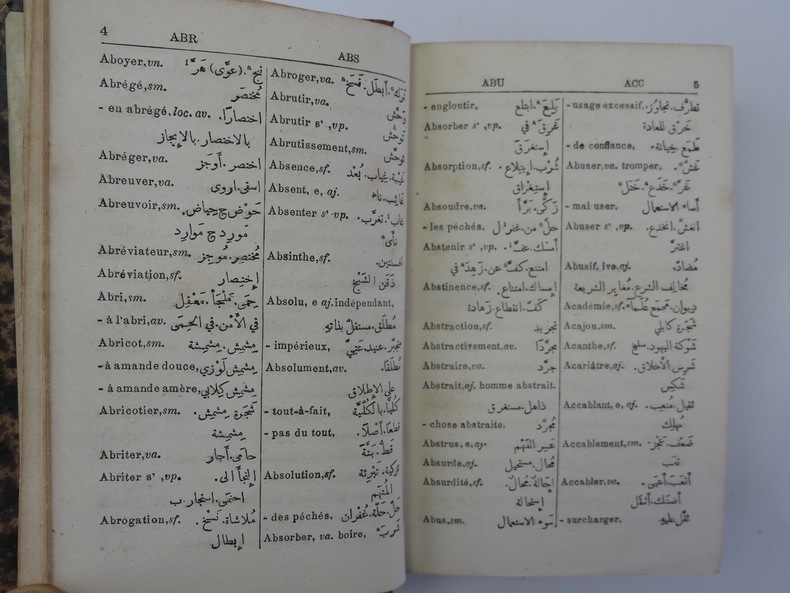 4 ABR
ABS
Aboyer, vn. نبح
Abrégé, sm. مُختصَر
- en abrégé. loc. av. اختصارًا.
بالاختصار. بالإيجاز
Abréger, va. اختصر. أوجز
Abreuver, va. اسقى. اروى
Abreuvoir, sm. حَوْض ج حِياض.
مَورِد ج مَوارِد
Abréviateur, sm. مُختصِر. مُوجِز
Abréviation, sf. إختِصار
Abri, sm. حِمَى. مَلْجَأ. مَعْقِل
- à l'abri, av. في الأَمن. في الحِمَى
Abricot, sm. مِشمِش. مِشمِشة
- à amande douce, مِشمِش لَوْزي
- à amande amère, مِشمِش كِلابي
Abricotier, sm. شَجَرَة مِشمِش.
مِشمِشة
Abriter, va. حامى. أجار
Abriter s', vp. إلتجأ الى.
احتمى. استجار ب
Abrogation, sf. مُلاشاة. نَسْخ.
إبطال
Abroger, va. أبطَل. فَسَخ
Abrutir, va.
وَحَّش
Abrutir s', vp.
تَوحَّش
Abrutissement, sm.
توحُّش
Absence, sf. غَيْبة. غِياب. بُعْد
Absent, e, aj. غايِب. ناءٍ
Absenter s', vp. غاب. تغرَّب.
نأى
Absinthe, sf. افسنتين.
ذَقَن الشَّيْخ
Absolu, e aj. indépendant,
مُطلَق. مستقلّ بذاته
- impérieux, عنيد.
Absolument, av. مُطلَقًا.
على الإطلاق
- tout-à-fait, كُلِّيًّا. بالكُلِّيَّة
- pas du tout, قطعًا. أصلًا.
قَطّ. بَتَّةً
Absolution, sf. تزكية. تَبْرِئة
المُتهَم
- des péchés. حَلّ. حَلَّة. غُفْران
Absorber, va. boire, شَرِب
ABU ACC 5
- engloutir, بَلِع. ابتلع
Absorber s', vp. غَرِق في
إستغرق
Absorption, sf. شُرْب. إبتِلاع.
إستِغراق
Absoudre, va. زكَّى. برَّأ
- les péchés. حلّ من. غفر ل
Abstenir s', vp. أمسك. عفَّ.
امتنع. كفَّ عن. زَهَد في
Abstinence, sf. إمساك. امتناع.
كَفّ. انقطاع. زَهادة
Abstraction, sf. تجريد
Abstractivement, av. مجرَّدًا
Abstraire, va. جرَّد
Abstrait, aj. homme abstrait.
ذاهل. مستغرق
- chose abstraite. مُجرَّد
Abstrus, e, aj. عَسِير الفَهْم
Absurde, aj. مُحال. مستحيل
Absurdité, sf. إحالة. مُحال.
إستحالة
Abus, sm. سُوء الاستعمال
- usage excessif, تطرُّف. تجاوُز.
خَرْق للعادة
- de confiance, طَمَع. خِيانة.
Abuser, va. tromper, غَشّ.
غَرّ. خَدَع. خَتَل
- mal user, أساء الاستعمال
Abuser s', vp. انغشّ. انخدع.
اغترّ
Abusif, ive, aj. مُضادّ.
مُخالِف الشرع. مُغاير الشريعة
Académie, sf. ديوان. مَجمَع عُلَماء
Acajou, sm. شَجَرَة كابلي
Acanthe, sf. شوكة اليهود.
Acariâtre, aj. شَرِس الأخلاق.
شَكِس
Accablant, e, aj. ثقيل. مُتعِب.
مُهلِك
Accablement, sm. ضَعْف. عَجْز.
تعَب
Accabler, va. أتعَب. أعيى.
أضنك. أثقل
- surcharger, ثقَّل عليه